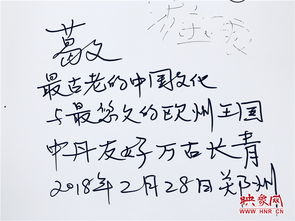 葛文
最古老的中国文化
与最悠久的欧州王国
中丹友好万古长青
2018年2月28日郑州
映象网
WWW.HNR.CN